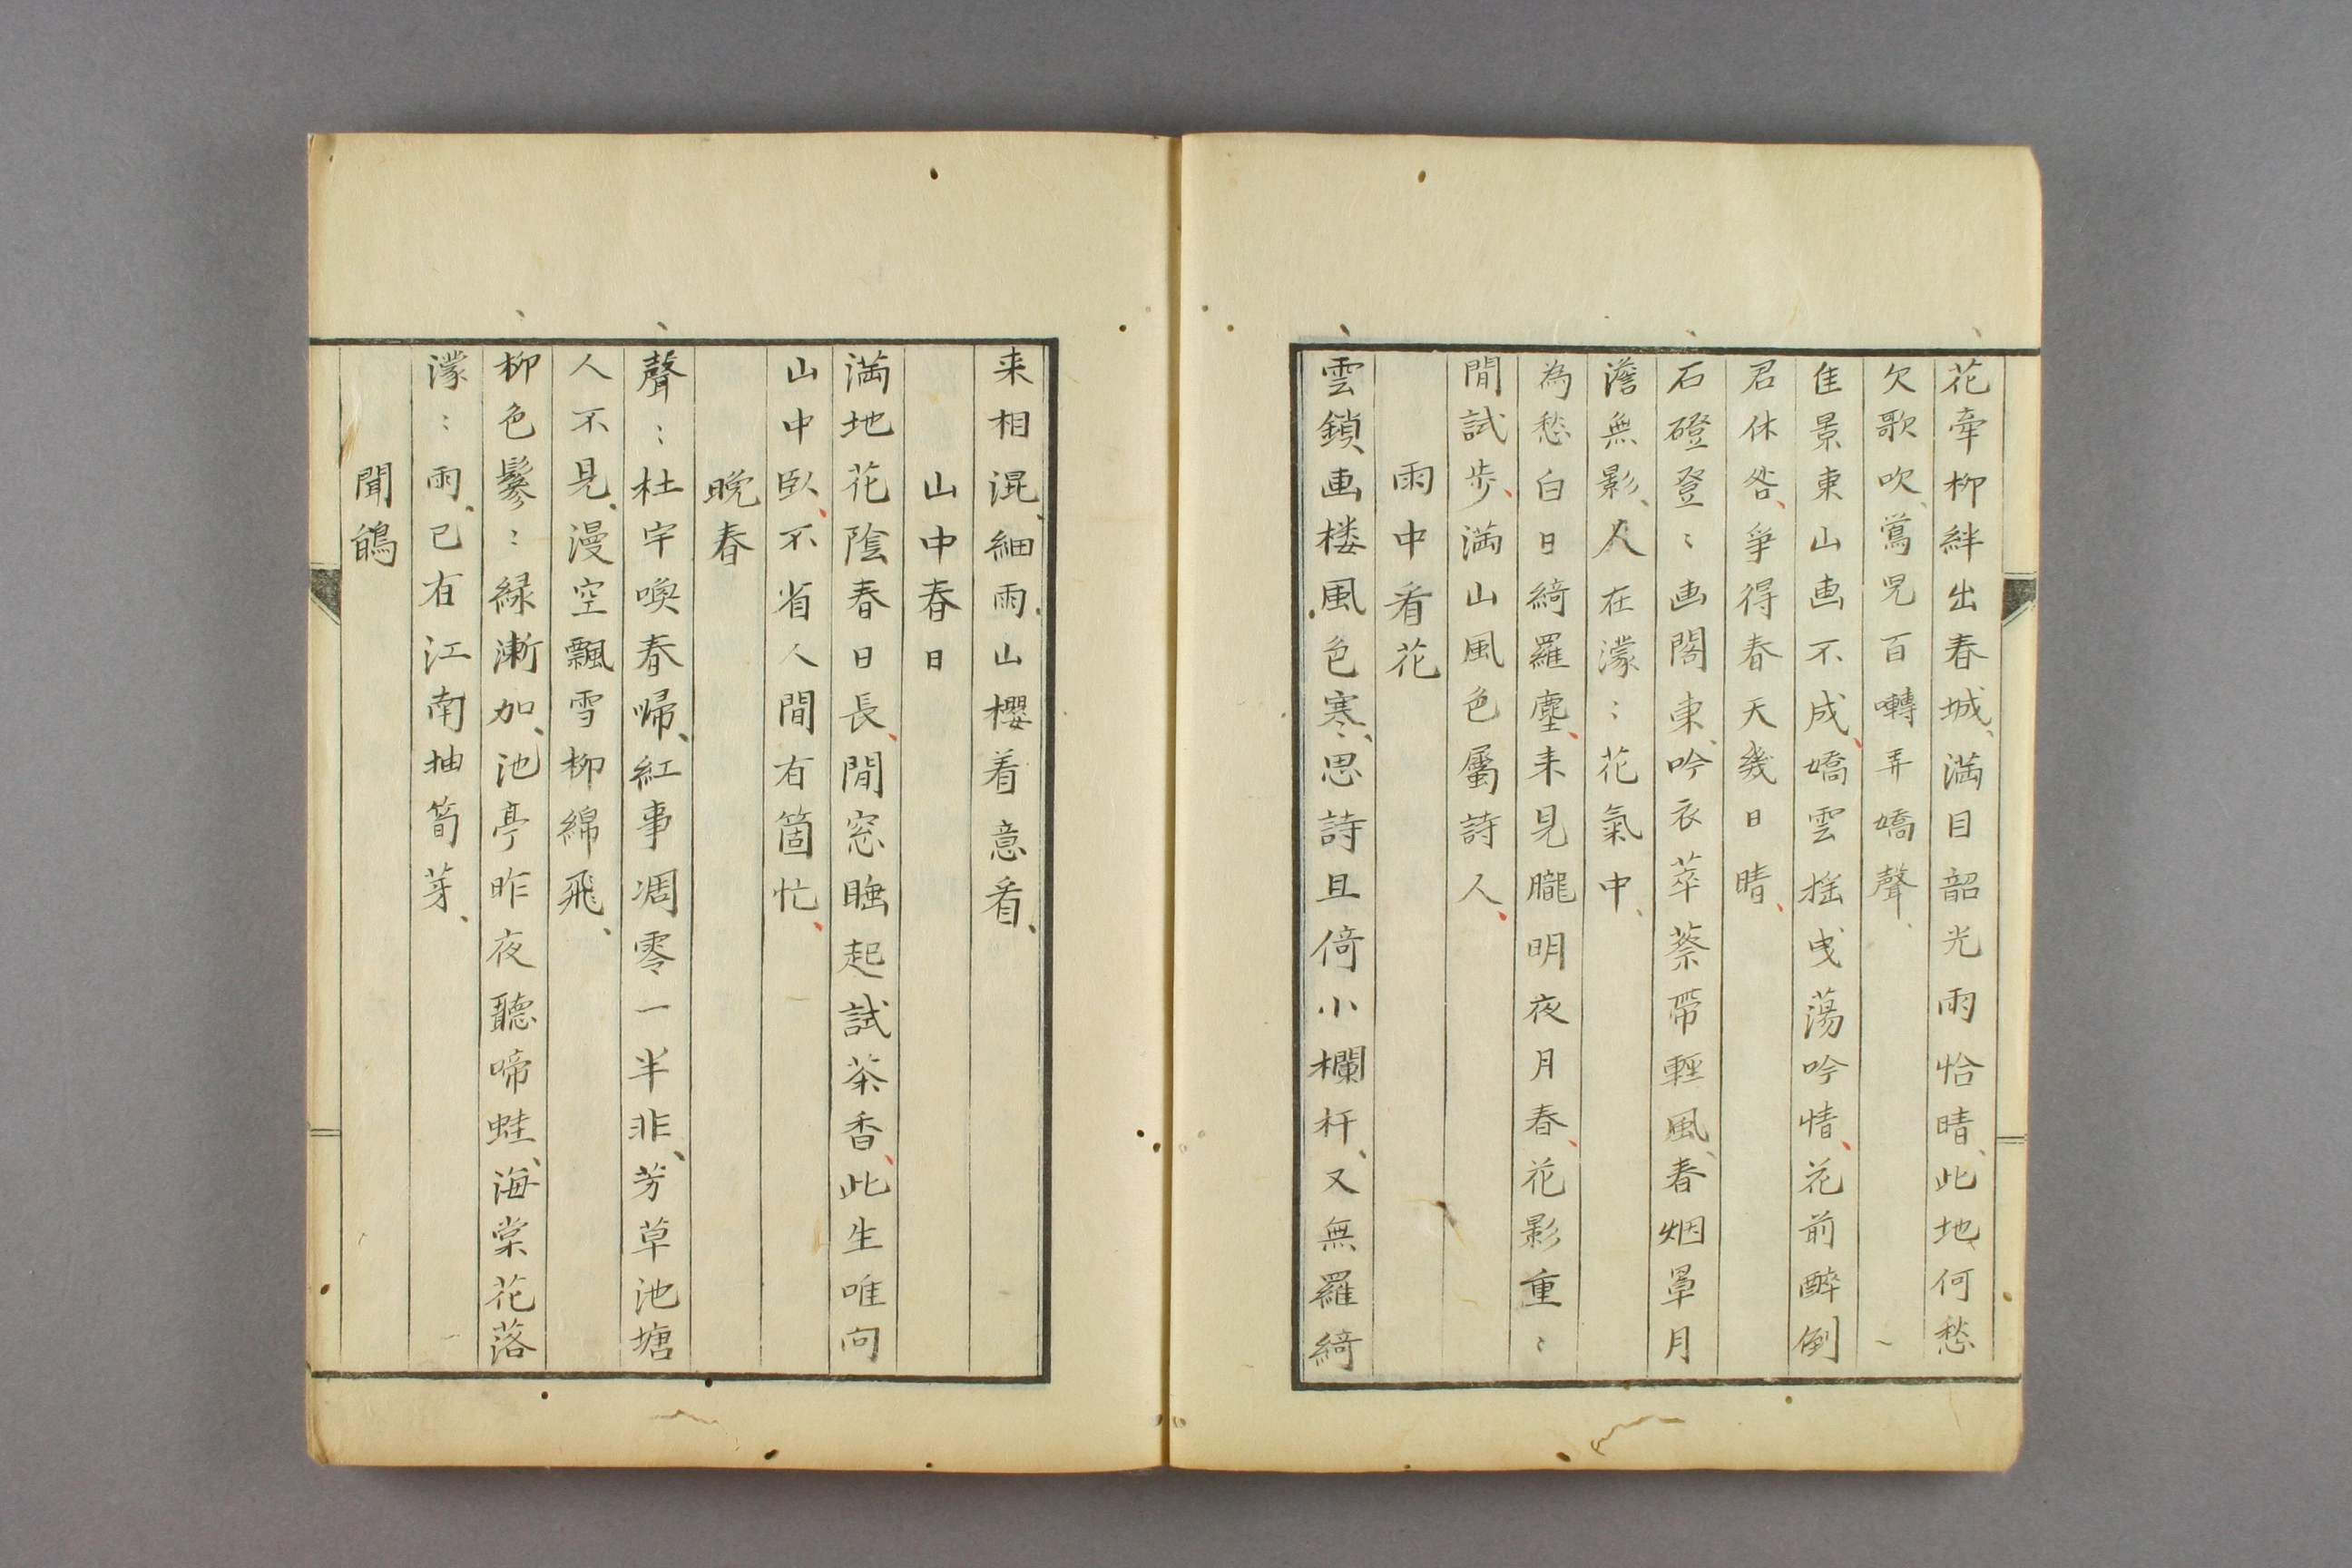 花牽柳絆出春城、満目韶光雨恰晴、此地何愁
欠歌吹、鶯児百囀弄嬌聲、
佳景東山画不成、嬌雲揺曳蕩吟情、花前醉倒
君休咎、爭得春天幾日晴、
石磴登〻画閣東、吟衣萃蔡帶輕風、春烟羃月
澹無影、人在濛〻花氣中、
為愁白日綺羅塵、来見朧明夜月春、花影重〻
間試步、満山風色屬詩人、
雨中看花
雲鎖画楼風色寒、思詩且倚小欄杆、又無羅綺
来相混、細雨山櫻着意看、
山中春日
満地花陰春日長、間窓睡起試茶香、此生唯向
山中臥、不省人間有箇忙、
晩春
聲〻杜宇喚春帰、紅事凋零一半非、芳草池塘
人不見、漫空飄雪柳綿飛、
柳色鬖〻緑漸加、池亭昨夜聽啼蛙、海棠花落
濛〻雨、已有江南抽筍芽、
聞鵑